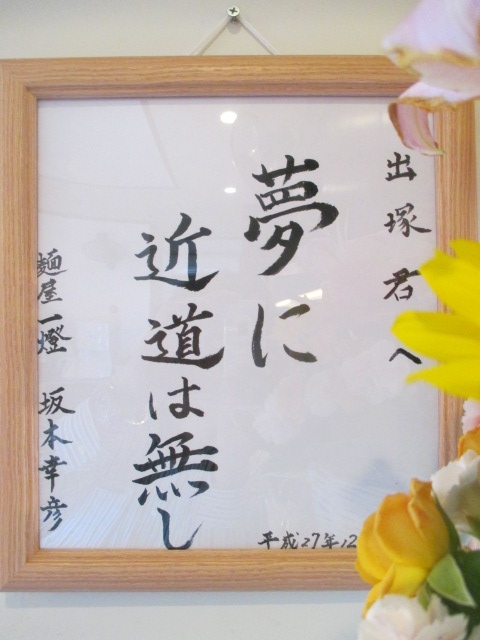 出塚君へ
夢に
近道は無し
平成27年12
麺屋一燈 坂本幸彦